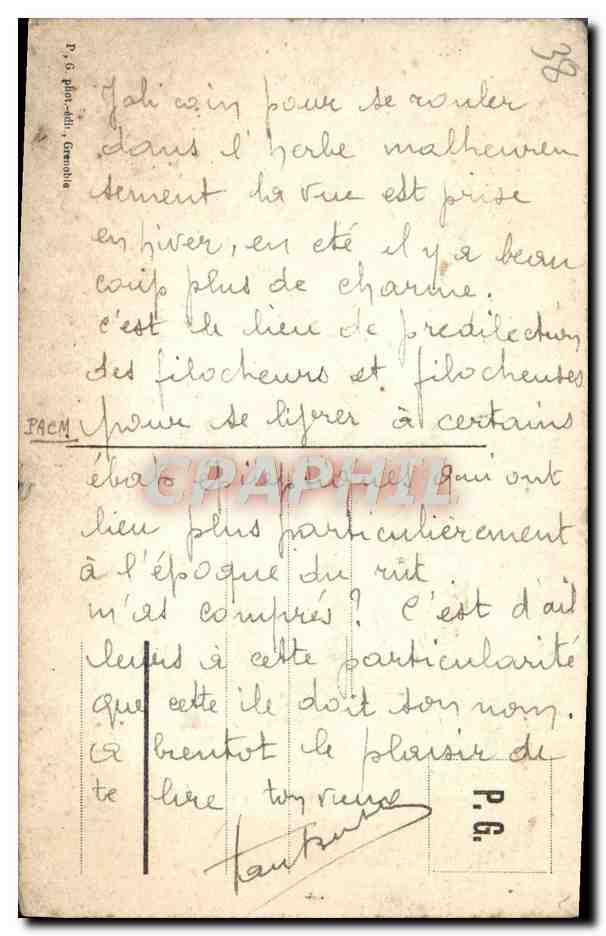 38
P, G. phot.-édit., Grenoble
Joli coin pour se rouler
dans l'herbe malheureu
sement la vue est prise
en hiver, en eté il y a beau
coup plus de charme.
c'est le lieu de predilection
des filocheurs et filocheuses
PACM
pour se livrer à certains
ébats qui ont
CPAPHIL
lieu plus particulièrement
à l'époque du rut.
m'as compris? C'est d'ail
leurs à cette particularité
que cette ile doit son nom.
a bientot le plaisir de
te lire ton vieux
P. G.